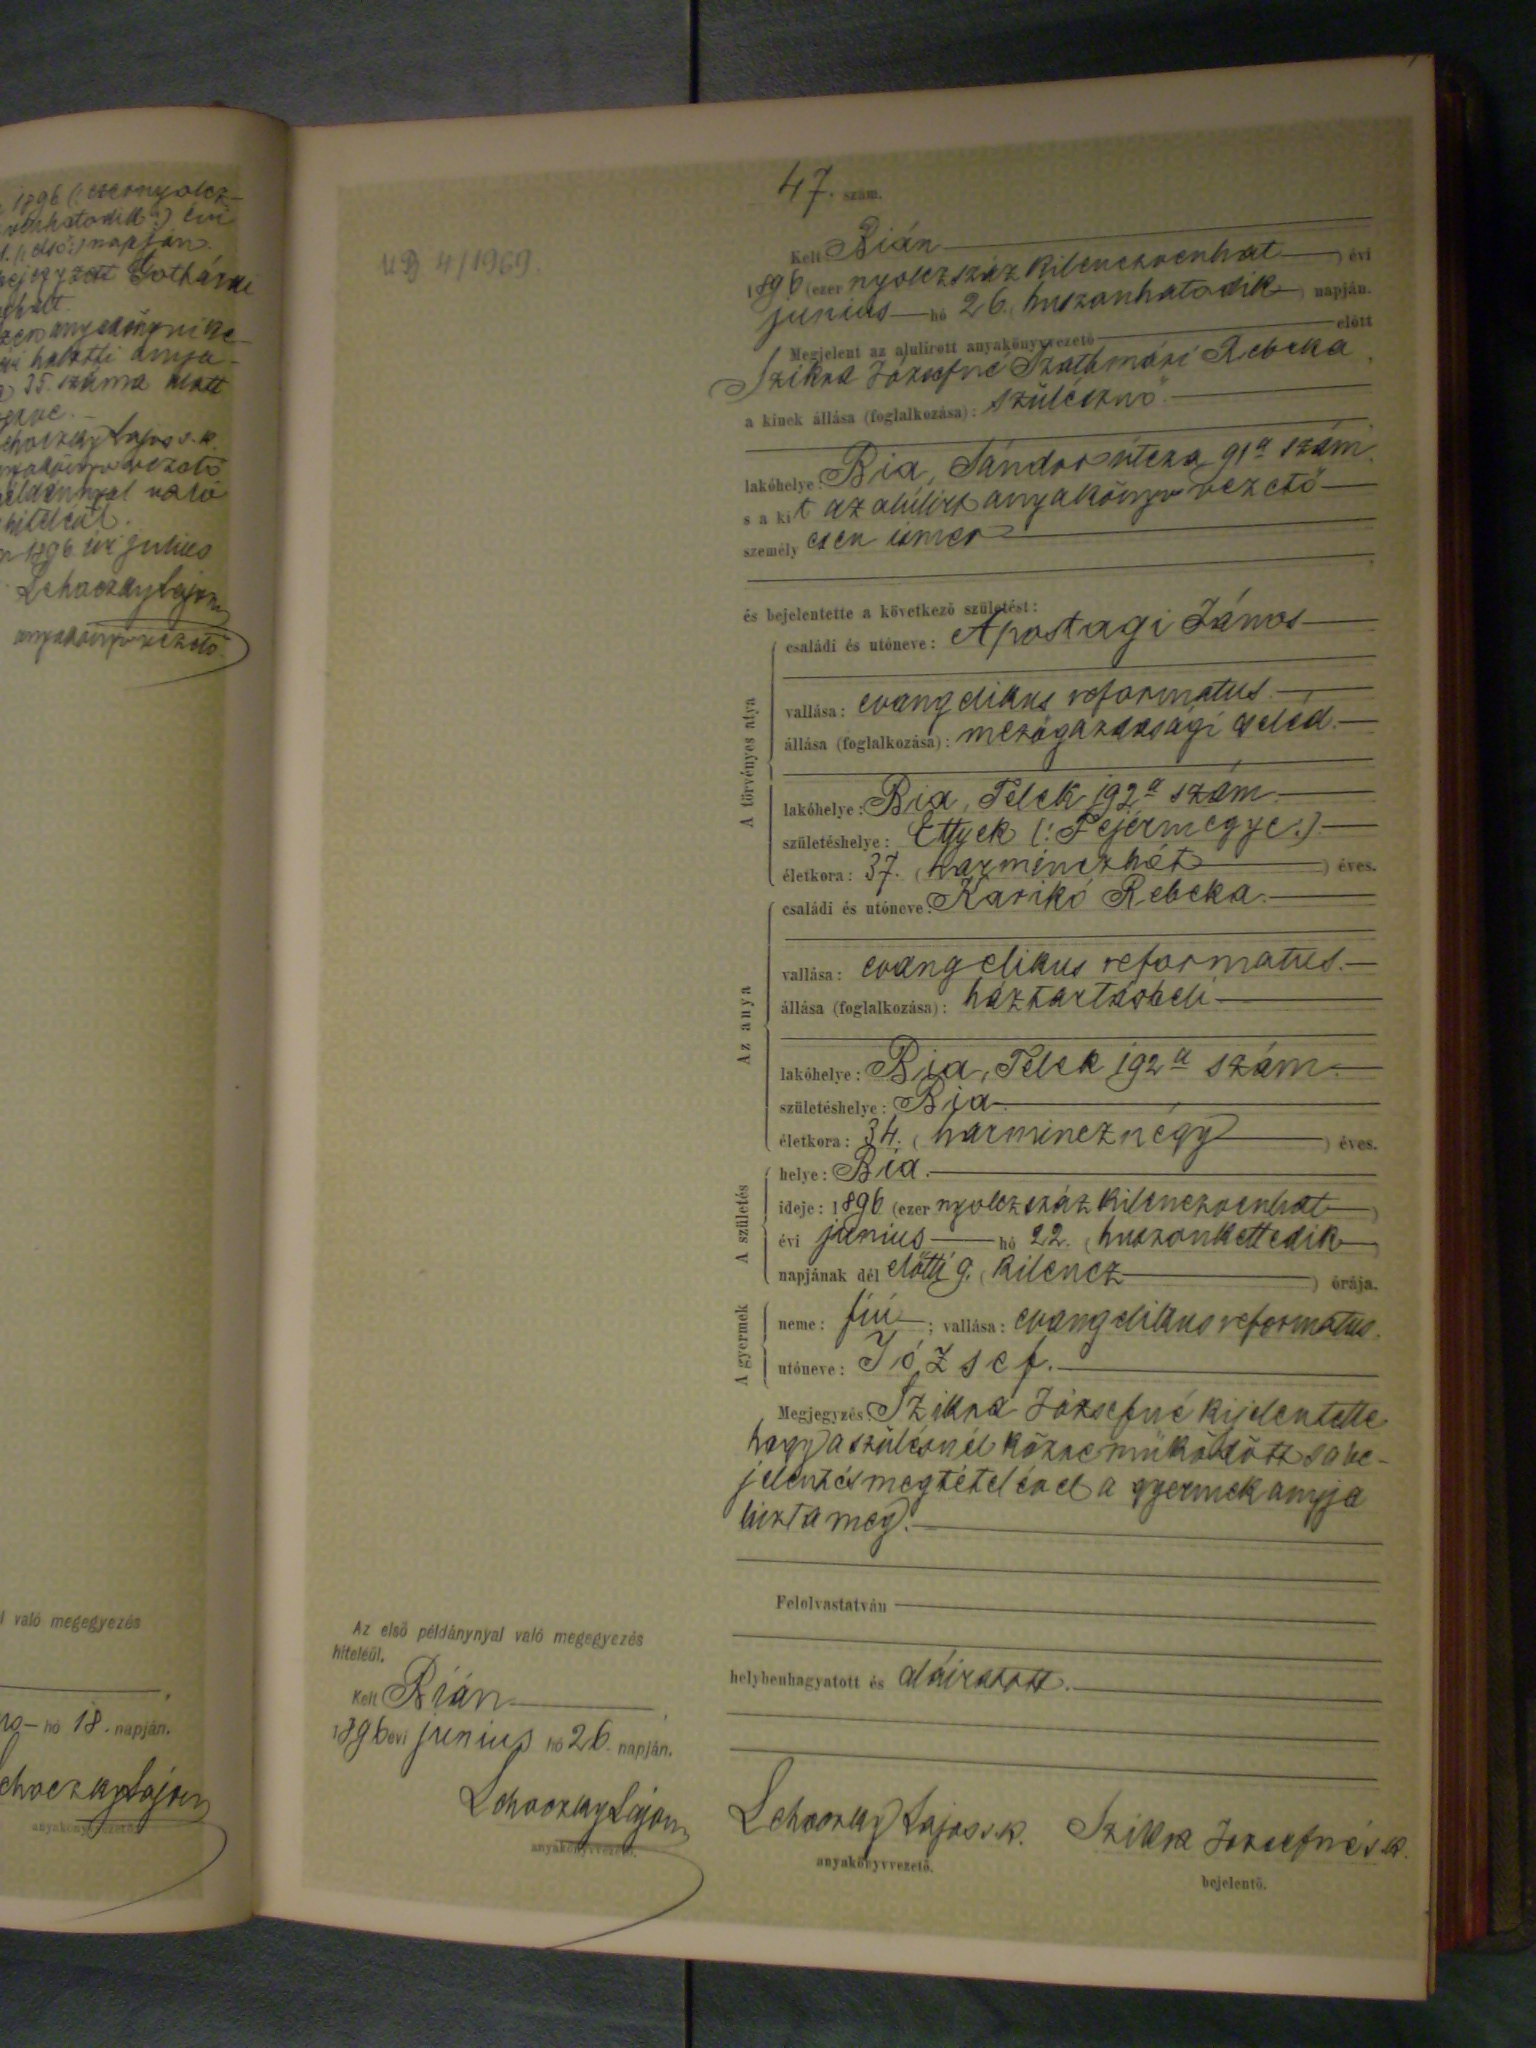 1896 (: ezernyolcz-
venhatodik :) évi
1. (: első :) napján.
Gothárdi
halotti anya-
35. száma alatt
Lehoczky Lajos s. k.
anyakönyvvezető
példánnyal való
hiteléül.
1896 évi julius
Lehoczky Lajos
anyakönyvvezető
l való megegyezés
hó 18. napján.
Lehoczky Lajos
anyakönyvvezető.
UB 4/1969.
Az első példánynyal való megegyezés
hiteléül.
Kelt Bián
1896 évi junius hó 26. napján.
Lehoczky Lajos
anyakönyvvezető.
47. szám.
Kelt Bián
1896 (ezer nyolczszáz kilenczvenhat) évi
junius hó 26. (huszonhatodik) napján.
Megjelent az alulirott anyakönyvvezető előtt
Szikra Józsefné Szathmári Rebeka
a kinek állása (foglalkozása): szülésznő.
lakóhelye: Bia, Sándor útcza 91a szám
s a kit az alúlirt anyakönyvvezető
személyesen ismer
és bejelentette a következő születést:
A törvényes atya
családi és utóneve: Apostagi János
vallása: evangelikus reformatus.
állása (foglalkozása): mezőgazdasági cseléd.
lakóhelye: Bia, Telek 192a szám.
születéshelye: Ettyek (: Fejérmegye :)
életkora: 37. (harminczhét) éves.
Az anya
családi és utóneve: Karikó Rebeka.
vallása: evangelikus reformatus.
állása (foglalkozása): háztartásbeli
lakóhelye: Bia, Telek 192a szám.
születéshelye: Bia
életkora: 34. (harmincznégy) éves.
A születés
helye: Bia.
ideje: 1896 (ezer nyolczszáz kilenczvenhat)
évi junius hó 22. (huszonkettedik)
napjának dél előtti 9. (kilencz) órája.
A gyermek
neme: fiú; vallása: evangelikus reformatus.
utóneve: József.
Megjegyzés: Szikra Józsefné kijelentette
hogy a szülésnél közreműködött s a be-
jelentés megtételével a gyermek anyja
bizta meg.
Felolvastatván
helybenhagyatott és aláiratott.
Lehoczky Lajos s. k.
anyakönyvvezető.
Szikra Józsefné s. k.
bejelentő.